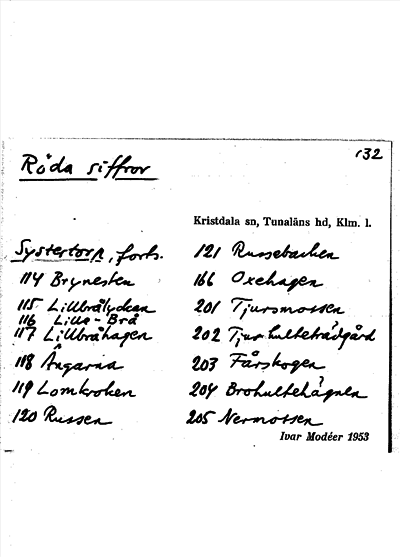 132
Röda siffror
Kristdala sn, Tunaläns hd, Klm. l.
Systertorp, forts.
114 Brynesten
115 Lillbrålyckan
116 Lilla-Brå
117 Lillbråhagen
118 Ängarna
119 Lomkroken
120 Russen
121 Russebacken
166 Oxehagen
201 Tjursmossen
202 Tjurhulteträdgård
203 Fårskogen
204 Brohultehägnen
205 Nermossen
Ivar Modéer 1953